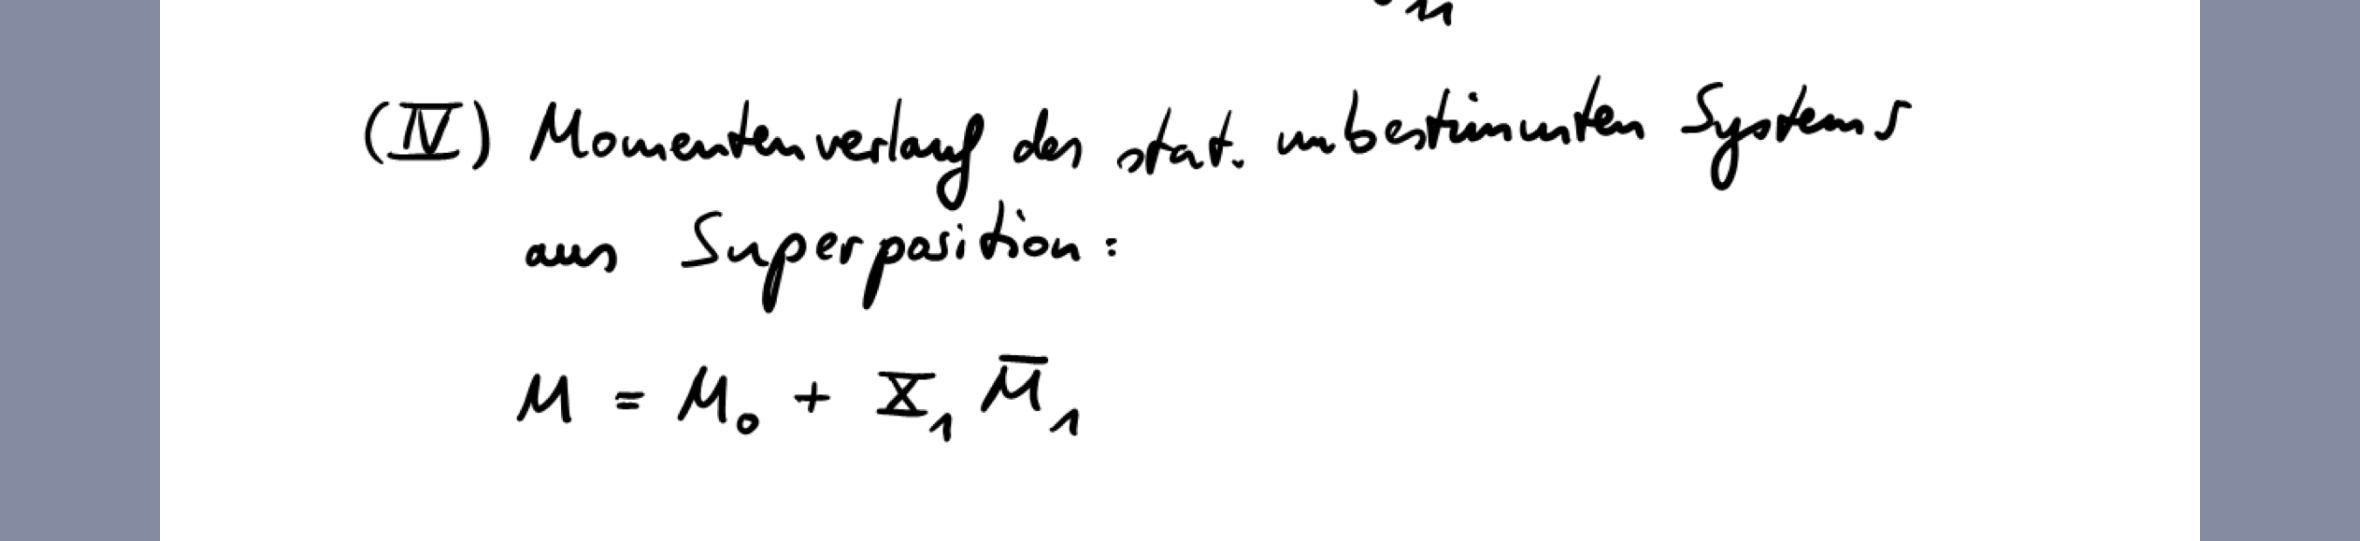 (IV) Momentenverlauf des stat. unbestimmten Systems
aus Superposition:
M = M₀ + X₁ M̄₁